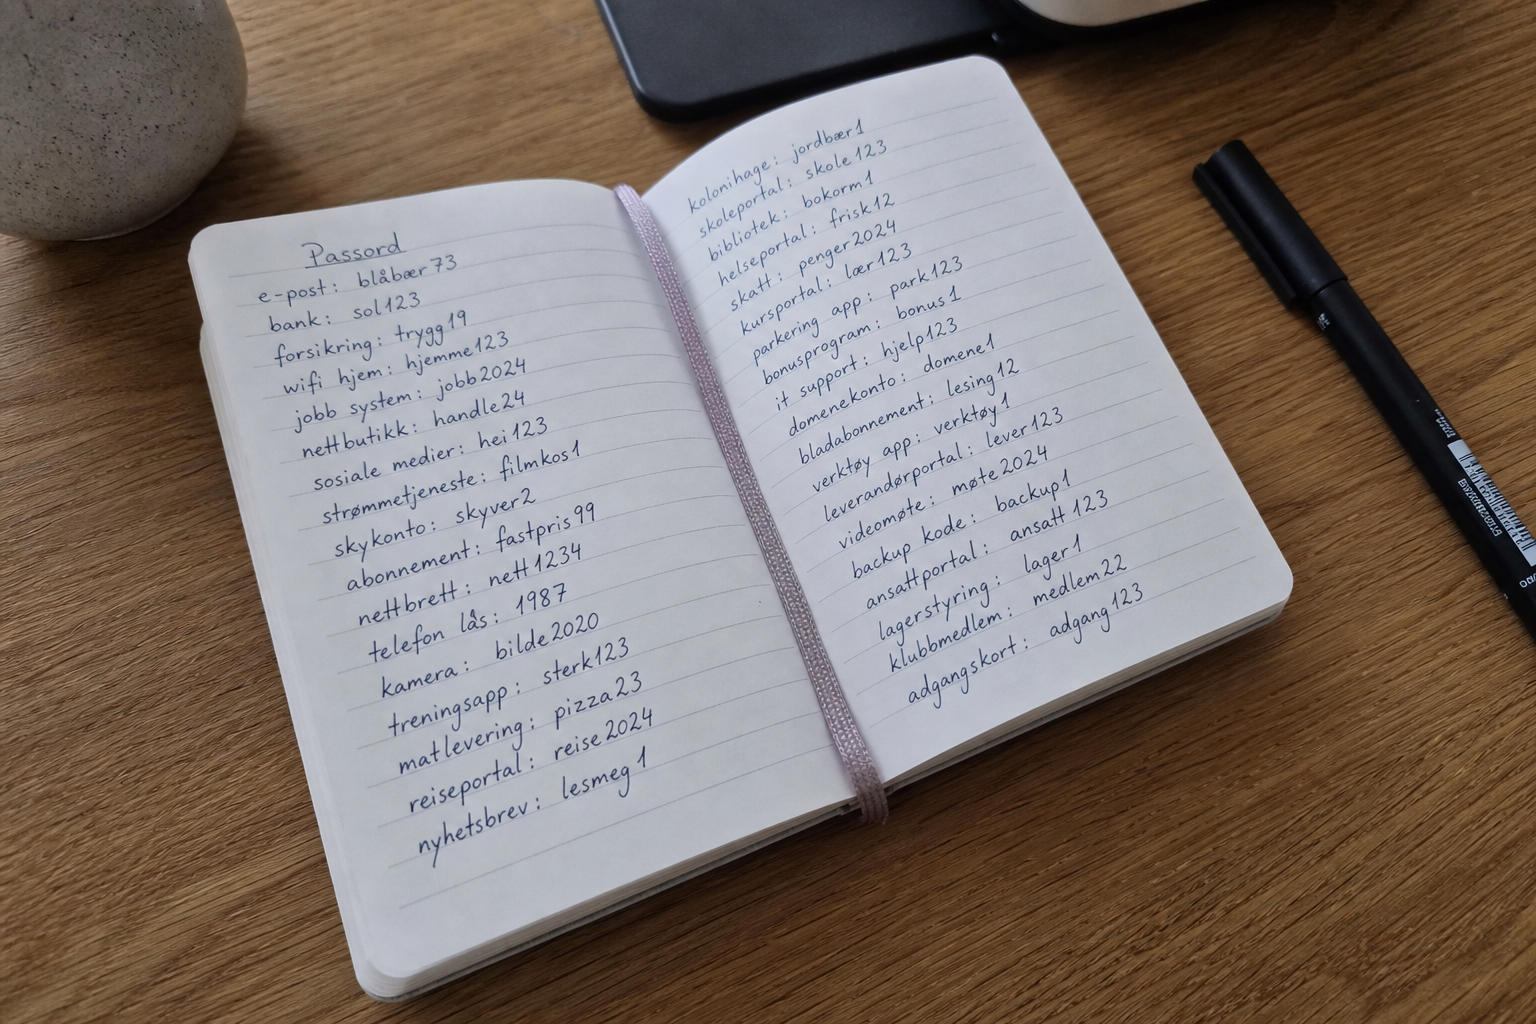 Passord
e-post: blåbær73
bank: sol123
forsikring: trygg19
wifi hjem: hjemme123
jobb system: jobb2024
nettbutikk: handle24
sosiale medier: hei123
strømmetjeneste: filmkos1
skykonto: skyver2
abonnement: fastpris99
nettbrett: nett1234
telefon lås: 1987
kamera: bilde2020
treningsapp: sterk123
matlevering: pizza23
reiseportal: reise2024
nyhetsbrev: lesmeg1
kolonihage: jordbær1
skoleportal: skole123
bibliotek: bokorm1
helseportal: frisk12
skatt: penger2024
kursportal: lær123
parkering app: park123
bonusprogram: bonus1
it support: hjelp123
domenekonto: domene1
bladabonnement: lesing12
verktøy app: verktøy1
leverandørportal: lever123
videomøte: møte2024
backup kode: backup1
ansattportal: ansatt123
lagerstyring: lager1
klubbmedlem: medlem22
adgangskort: adgang123